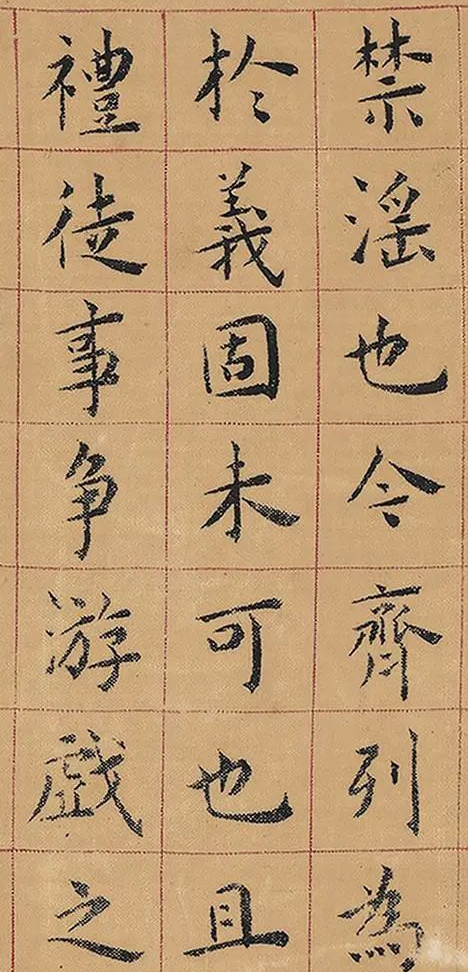 禁淫也今齊列為
於義固未可也且
禮徒事争游戲之